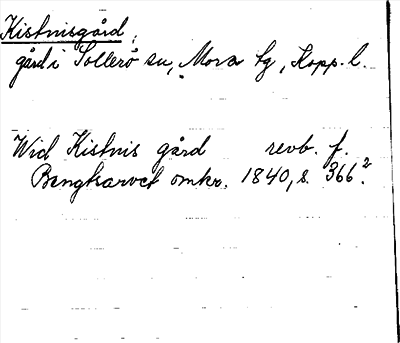 Kistnisgård,
gård i Sollerö sn, Mora tg, Kopp. l.
Wid Kistnis gård revb. f.
Bengtsarvet omkr. 1840, s. 366².